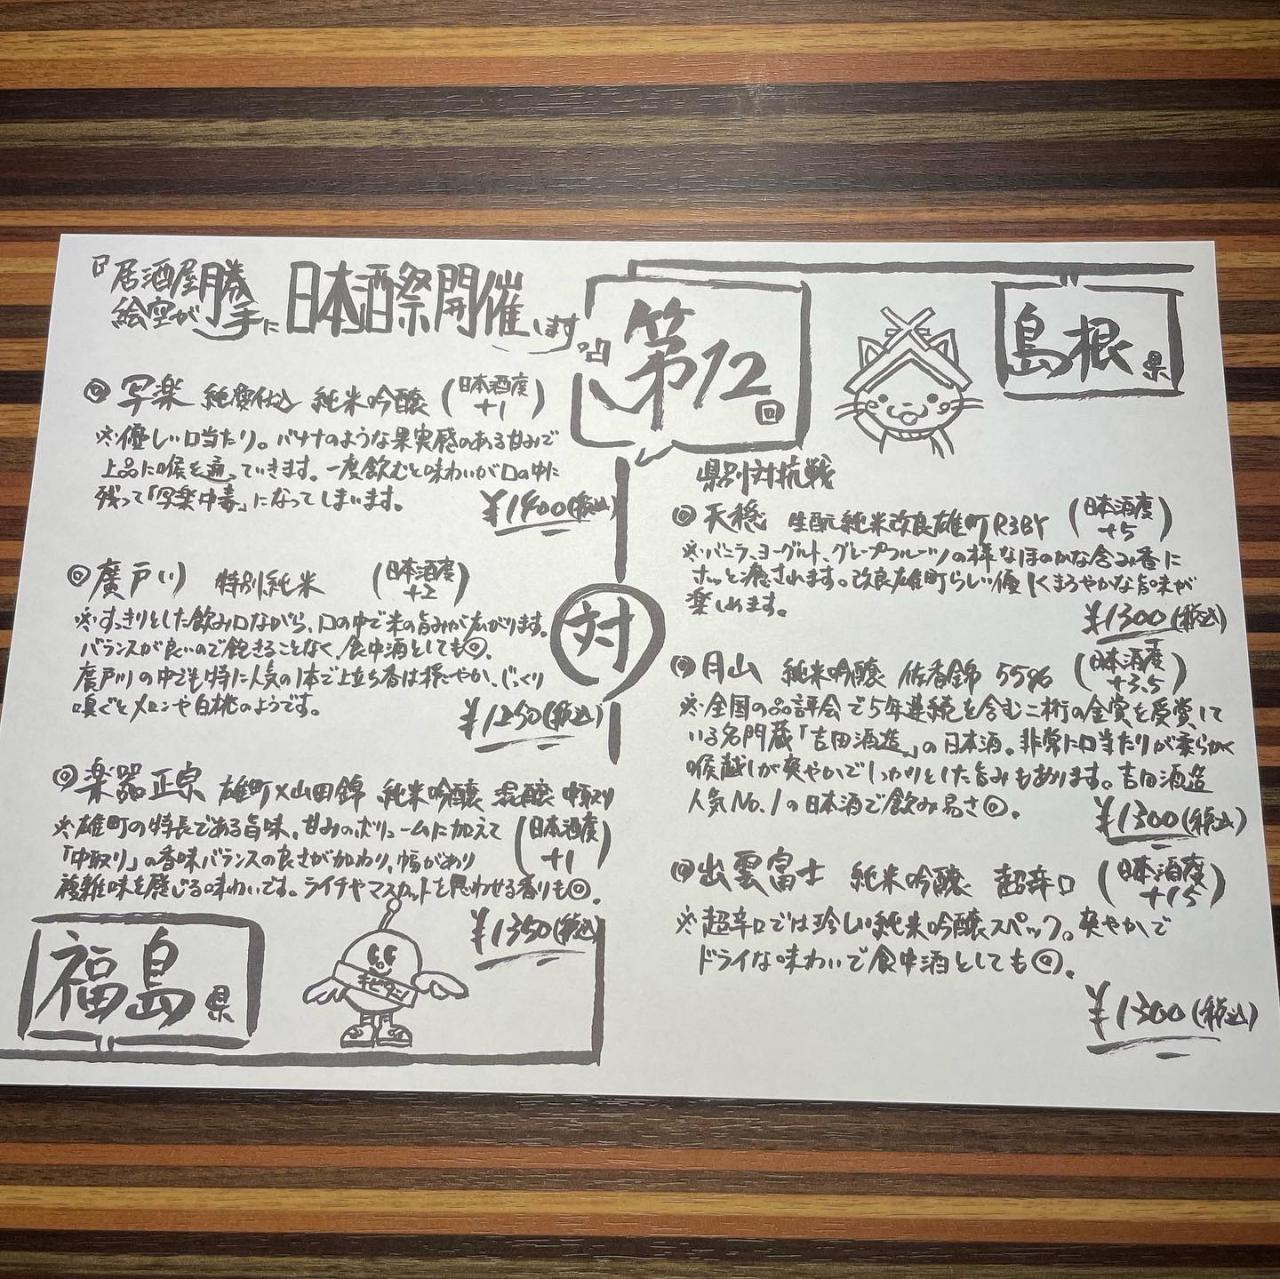 『居酒屋
絵空が
勝手に
日本酒祭開催します。』
第12回
県別対抗戦
島根県
◎写楽 純愛仕込 純米吟醸 (日本酒度 +1)
※優しい口当たり。バナナのような果実感のある甘みで
上品に喉を通っていきます。一度飲むと味わいが口の中に
残って「写楽中毒」になってしまいます。
¥1400(税込)
◎廣戸川 特別純米 (日本酒度 +2)
※すっきりとした飲み口ながら、口の中で米の旨みが広がります。
バランスが良いので飽きることなく、食中酒としても◎。
廣戸川の中でも特に人気の1本で上立ち香は穏やか、じっくり
嗅ぐとメロンや白桃のようです。
¥1250(税込)
◎楽器正宗 雄町×山田錦 純米吟醸 混醸 中取り
(日本酒度 +1)
※雄町の特長である旨味、甘みのボリュームに加えて
「中取り」の香味バランスの良さが加わり、幅があり
複雑味を感じる味わいです。ライチやマスカットを思わせる香りも◎。
¥1350(税込)
福島県
キビタン
対
◎天穏 生酛純米改良雄町R3BY (日本酒度 +5)
※バニラ、ヨーグルト、グレープフルーツの様なほのかな含み香に
ホッと癒されます。改良雄町らしい優しくまろやかな旨味が
楽しめます。
¥1300(税込)
◎月山 純米吟醸 佐香錦 55% (日本酒度 +3.5)
※全国の品評会で5年連続を含む二桁の金賞を受賞して
いる名門蔵「吉田酒造」の日本酒。非常に口当たりが柔らかく
喉越しが爽やかでしっかりとした旨みもあります。吉田酒造
人気No.1の日本酒で飲み易さ◎。
¥1300(税込)
◎出雲富士 純米吟醸 超辛口 (日本酒度 +15)
※超辛口では珍しい純米吟醸スペック。爽やかで
ドライな味わいで食中酒としても◎。
¥1300(税込)